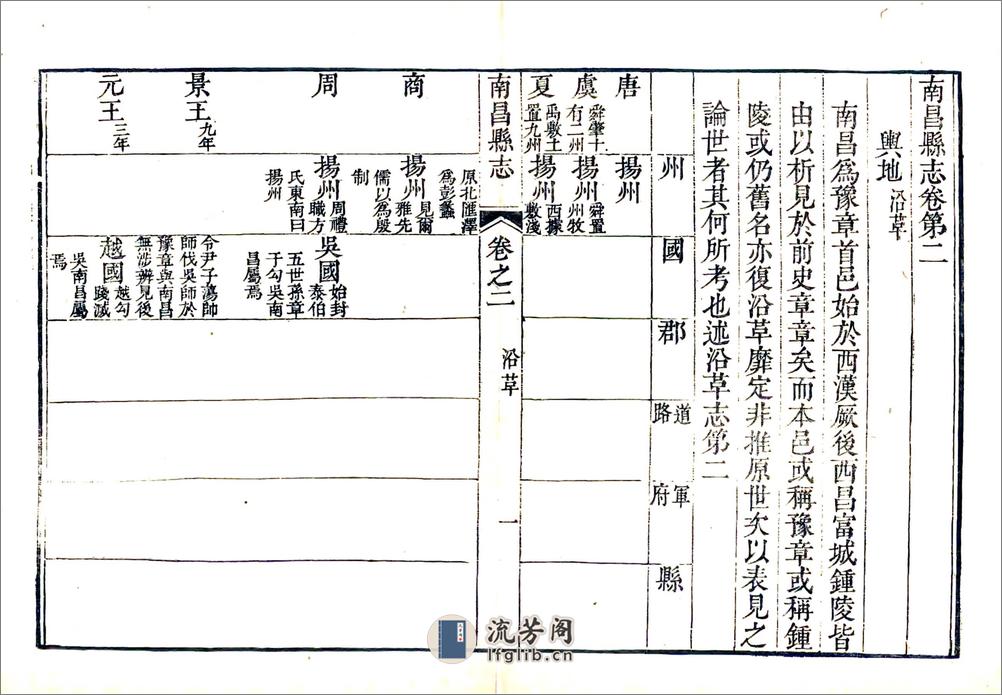 南昌縣志卷第二
輿地 沿革
南昌爲豫章首邑始於西漢厥後西昌富城鍾陵皆
由以析見於前史章章矣而本邑或稱豫章或稱鍾
陵或仍舊名亦復沿革靡定非推原世次以表見之
論世者其何所考也述沿革志第二
州
國
郡
道路
軍府
縣
唐
揚州
虞 舜肇十
有二州
揚州 舜置
州牧
夏 禹敷土
置九州
揚州 西據
敷淺
南昌縣志
卷之二
沿革
一
原北匯澤
爲彭蠡
商
揚州 見爾
雅先
儒以爲殷
制
周
揚州 周禮
職方
氏東南曰
揚州
吳國 始封
泰伯
五世孫章
于勾吳南
昌屬焉
景王 九年
令尹子蕩帥
師伐吳師於
豫章與南昌
無涉辨見後
元王 三年
越國 越勾
踐滅
吳南昌屬
焉
流芳阁
lfglib.cn